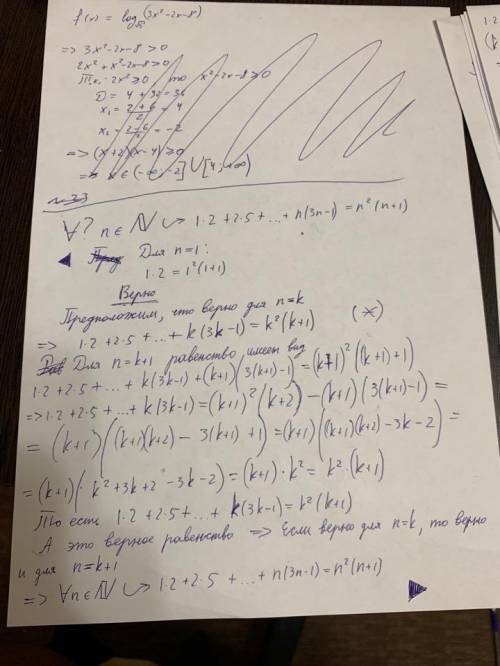 f(x) = log (3x²-2x-8)
=> 3x²-2x-8 > 0
2x² + x²-2x-8 > 0
2x² ≥ 0, то x²-2x-8 ≥ 0
D = 4 + 32 = 36
x₁ = (2+6)/2 = 4
x₂ = (2-6)/2 = -2
=> (x+2)(x-4) ≥ 0
=> x ∈ (-∞; -2] ∪ [4; +∞)
∀? n ∈ ℕ ↪ 1·2+2·5+...+n(3n-1) = n²(n+1)
◀ Для n=1:
1·2 = 1²(1+1)
Верно
Предположим, что верно для n=k
=> 1·2+2·5+...+k(3k-1) = k²(k+1) (*)
Для n=k+1 равенство имеет вид
1·2+2·5+...+k(3k-1)+(k+1)(3(k+1)-1) = (k+1)²((k+1)+1)
=> 1·2+2·5+...+k(3k-1) = (k+1)²(k+2) - (k+1)(3(k+1)-1) =
= (k+1)((k+1)(k+2) - 3(k+1)+1) = (k+1)((k+1)(k+2)-3k-2) =
= (k+1)·(k²+3k+2-3k-2) = (k+1)·k² = k²·(k+1)
То есть 1·2+2·5+...+k(3k-1) = k²(k+1)
А это верное равенство => Если верно для n=k, то верно
и для n=k+1
=> ∀n∈ℕ ↪ 1·2+2·5+...+n(3n-1) = n²(n+1) ▶